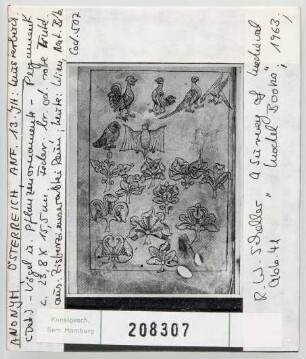 ANONYM ÖSTERREICH ANF. 13. JH: Musterbuch
(Det) - Vögel u. Pflanzenornamente - Pergament
c. 23,8 x 15,5 cm Feder br. od. rote Tinte.
aus: Zisterzienserabtei Rein; heute: Wien, Nat. Bib.
Cod. 507
R. W. Scheller "A Survey of Medieval
Model Books", 1963,
Abb.
Kunstgesch.
Sem. Hamburg
208307